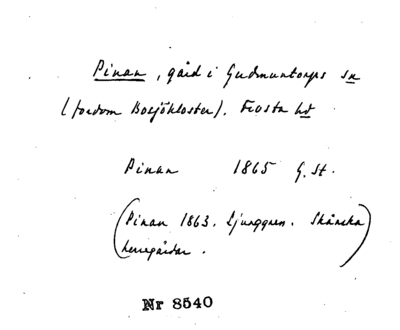 Pinan, gård i Gudmuntorps sn
(fordom Bosjökloster). Frosta hd
Pinan 1865 G. St.
(Pinan 1863. Ljunggren. Skånska
herregårdar.)
Nr 8540